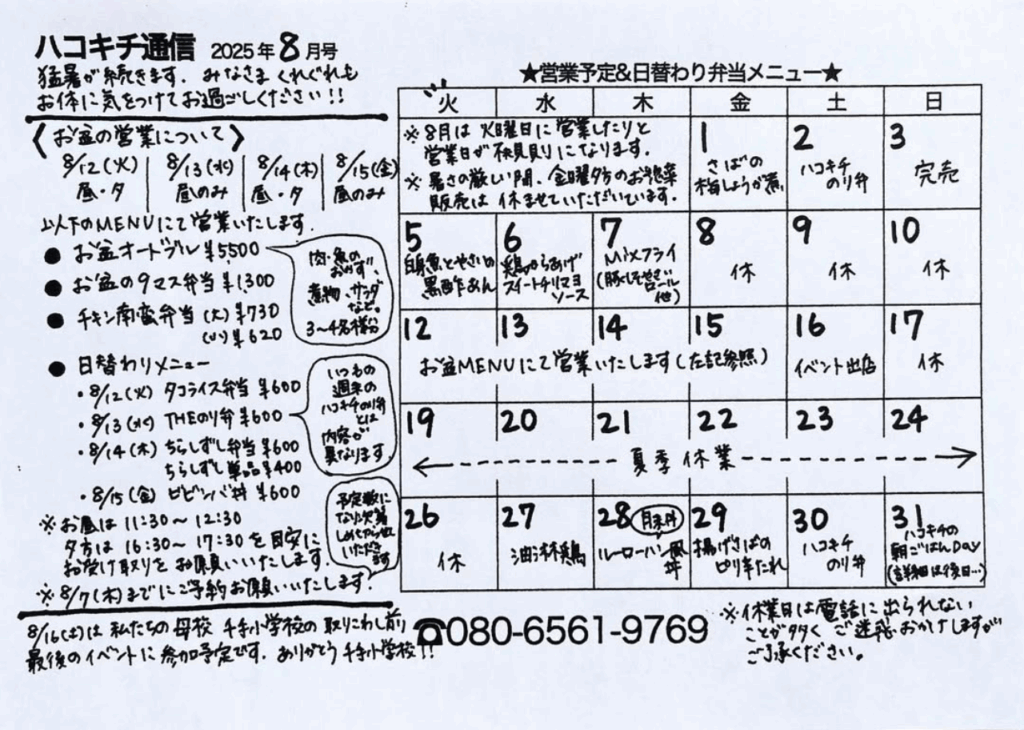 ハコキチ通信 2025年8月号
猛暑が続きます。みなさま くれぐれも
お体に気をつけてお過ごしください!!
〈お盆の営業について〉
8/12(火) 8/13(水) 8/14(木) 8/15(金)
昼・夕 昼のみ 昼・夕 昼のみ
以下のMENUにて営業いたします。
● お盆オードブル ¥5500
● お盆の9マス弁当 ¥1300
● チキン南蛮弁当 (大)¥730
(小)¥620
肉・魚の
おかず、
煮物、サラダ
など。
3〜4名様分
● 日替わりメニュー
・8/12(火) タコライス弁当 ¥600
・8/13(水) THEのり弁 ¥600
・8/14(木) ちらしずし弁当 ¥600
ちらしずし単品 ¥400
・8/15(金) ビビンバ丼 ¥600
いつもの
週末の
ハコキチのり弁
とは
内容が
異なります
※お昼は 11:30〜12:30
夕方は 16:30〜17:30を目安に
お受け取りをお願いいたします。
※8/7(木)までにご予約お願いいたします。
予定数に
なり次第
いただき
ます
8/16(土)は 私たちの母校 千手小学校の取りこわし前
最後のイベントに参加予定です。ありがとう千手小学校!!
★営業予定&日替わり弁当メニュー★
火 水 木 金 土 日
※8月は 火曜日に営業したりと
営業日が不規則になります。
※暑さの厳しい間、金曜夕方のお惣菜
販売は 休ませていただいています。
1 さばの
梅しょうが煮
2 ハコキチ
のり弁
3 完売
5 白身魚とやさいの
黒酢あん
6 鶏からあげ
スイートチリマヨ
ソース
7 Mixフライ
(豚しそチーズ
ロール
他)
8 休
9 休
10 休
12 13 14 15
お盆MENUにて営業いたします(左記参照)
16 イベント出店
17 休
19 20 21 22 23 24
夏季休業
26 休
27 油淋鶏
28 月末丼
ルーローハン風
丼
29 揚げさばの
ピリ辛だれ
30 ハコキチ
のり弁
31 ハコキチの
朝ごはんDAY
(詳細は後日…)
☎080-6561-9769
※休業日は電話に出られない
ことが多く ご迷惑おかけしますが
ご了承ください。